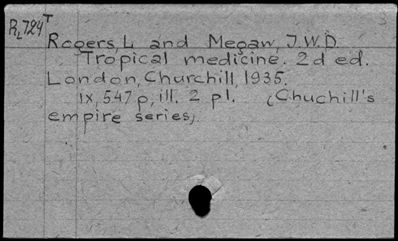 R₂724ᵀ
Rogers, L and Megaw, J.W.D.
Tropical medicine. 2d ed.
London, Churchill, 1935.
ix, 547 p, ill. 2 pl. (Chuchill's
empire series).